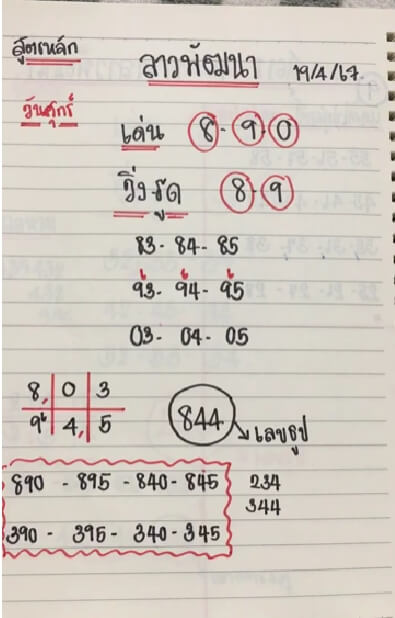 สูตรหลัก
ลาวพัฒนา 19/4/67.
วันศุกร์
เด่น 8 - 9 - 0
วิ่งรูด 8 - 9
83 - 84 - 85
93 - 94 - 95
03 - 04 - 05
8, 0 3
9 4, 5
844
เลขธูป
890 - 895 - 840 - 845
234
344
390 - 395 - 340 - 345